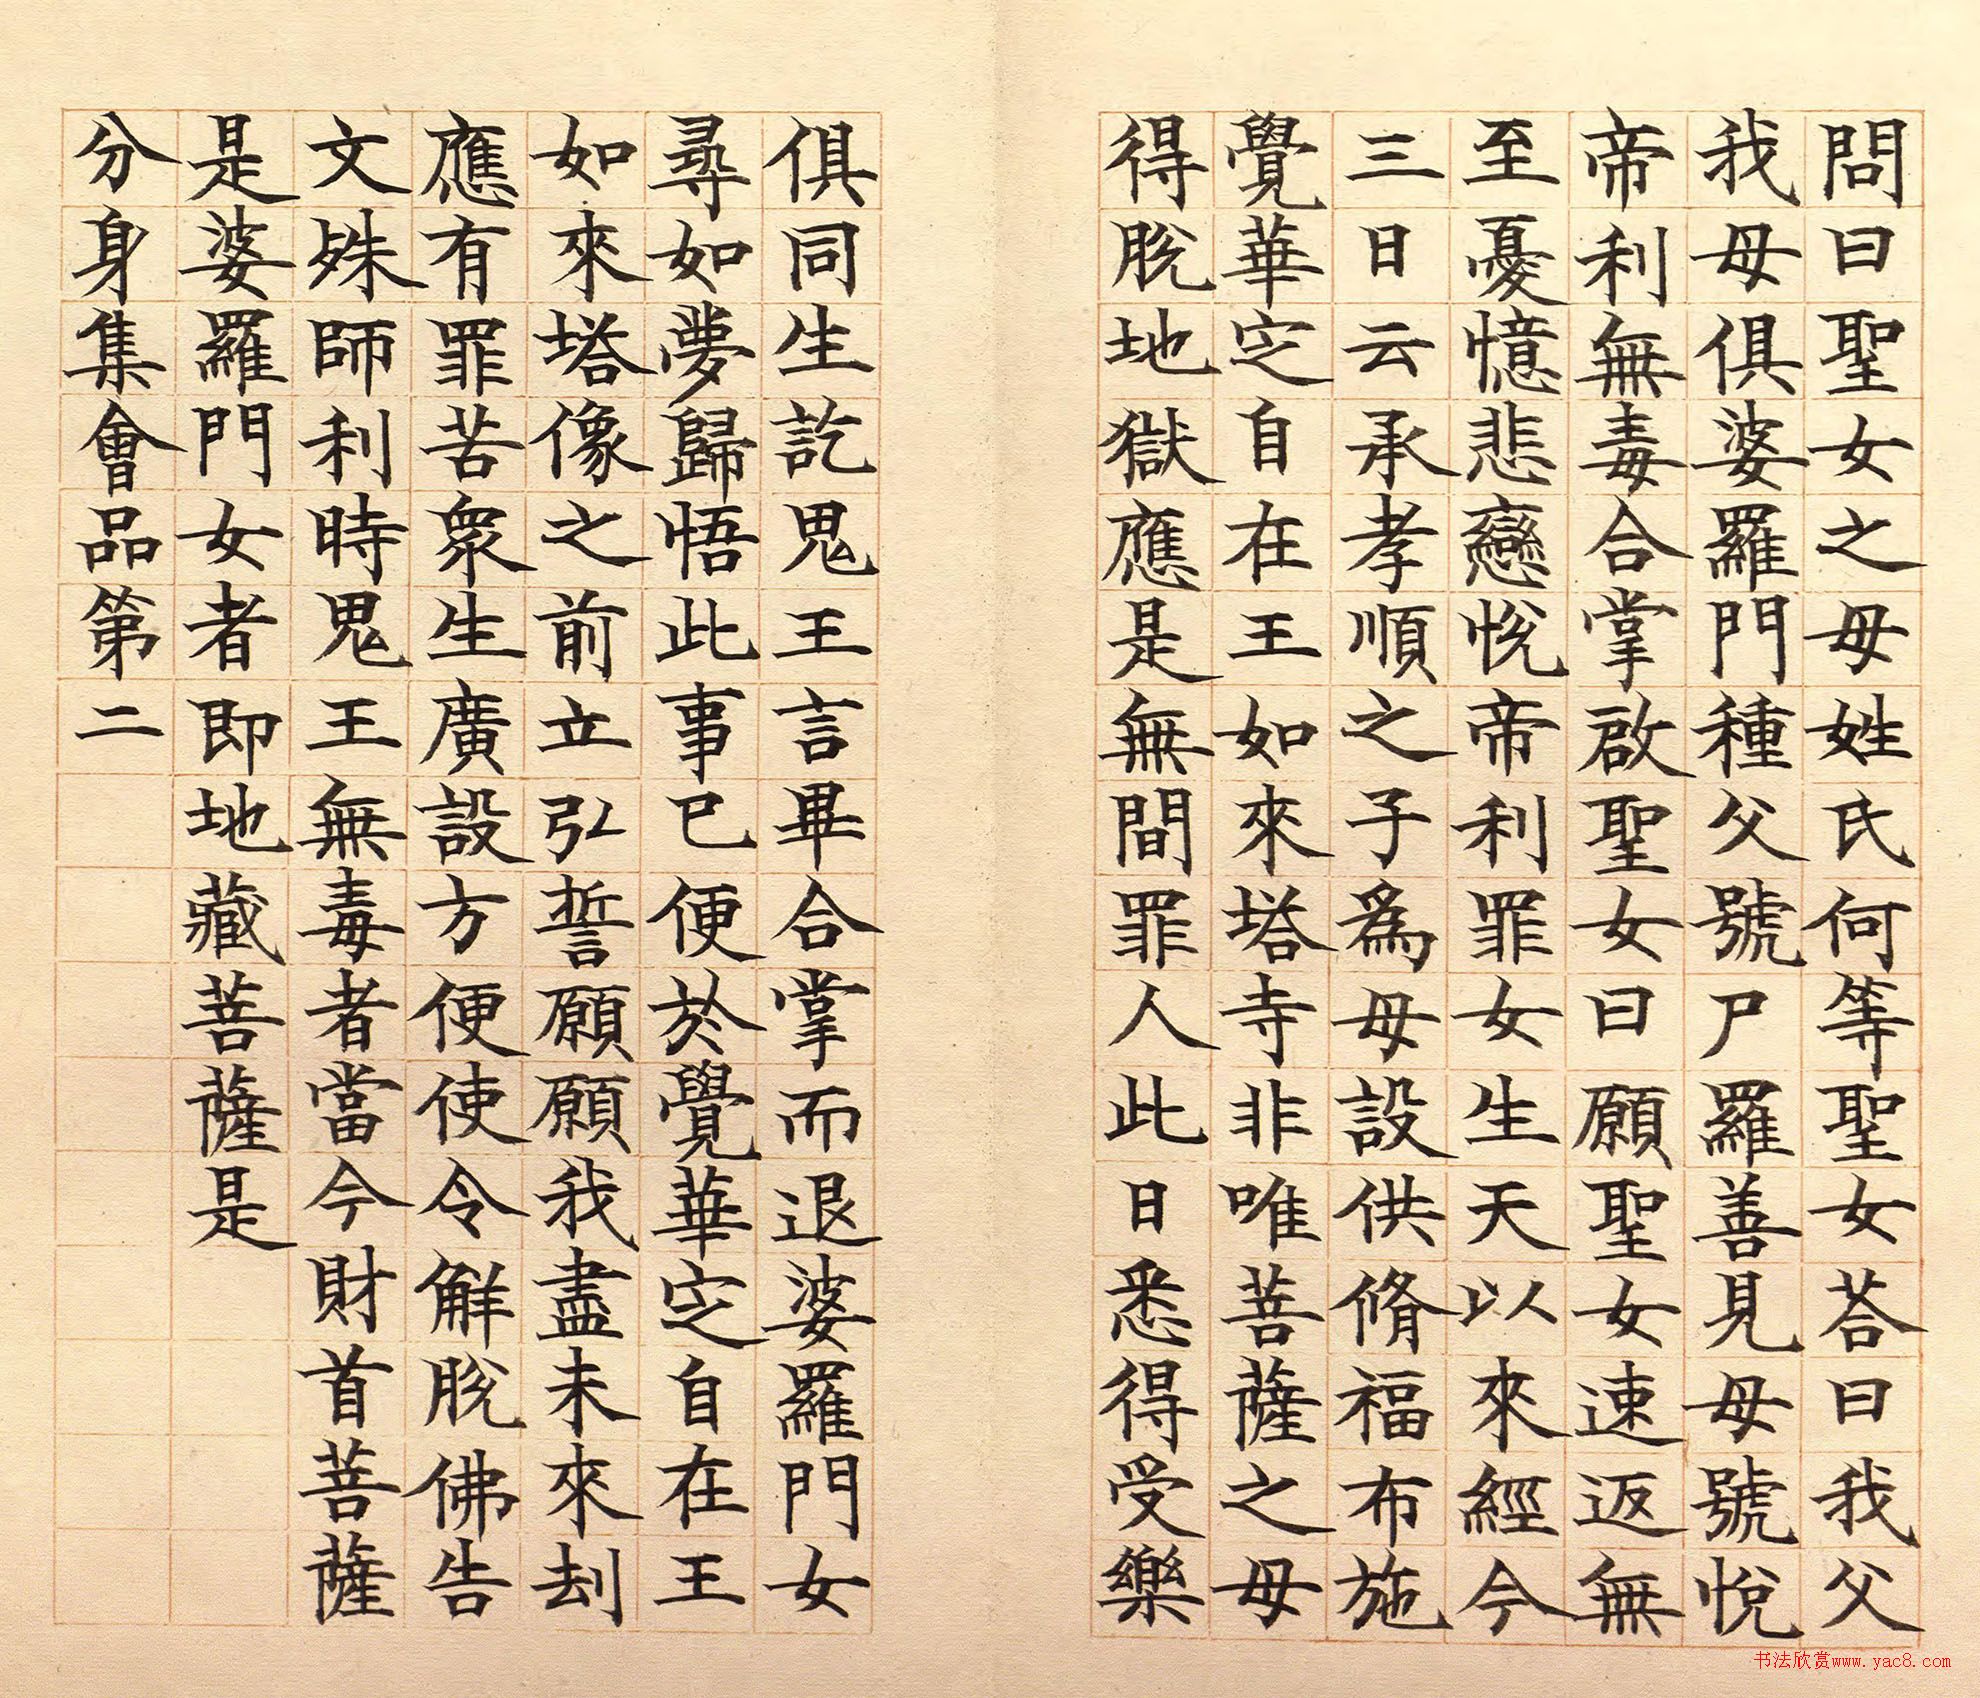 問曰聖女之母姓氏何等聖女荅曰我父
我母俱婆羅門種父號尸羅善見母號悅
帝利無毒合掌啟聖女曰願聖女速返無
至憂憶悲戀悅帝利罪女生天以來經今
三日云承孝順之子為母設供脩福布施
覺華定自在王如來塔寺非唯菩薩之母
得脫地獄應是無間罪人此日悉得受樂
俱同生訖鬼王言畢合掌而退婆羅門女
尋如夢歸悟此事已便於覺華定自在王
如來塔像之前立弘誓願願我盡未來刦
應有罪苦眾生廣設方便使令解脫佛告
文殊師利時鬼王無毒者當今財首菩薩
是婆羅門女者即地藏菩薩是
分身集會品第二
书法欣赏www.yac8.com